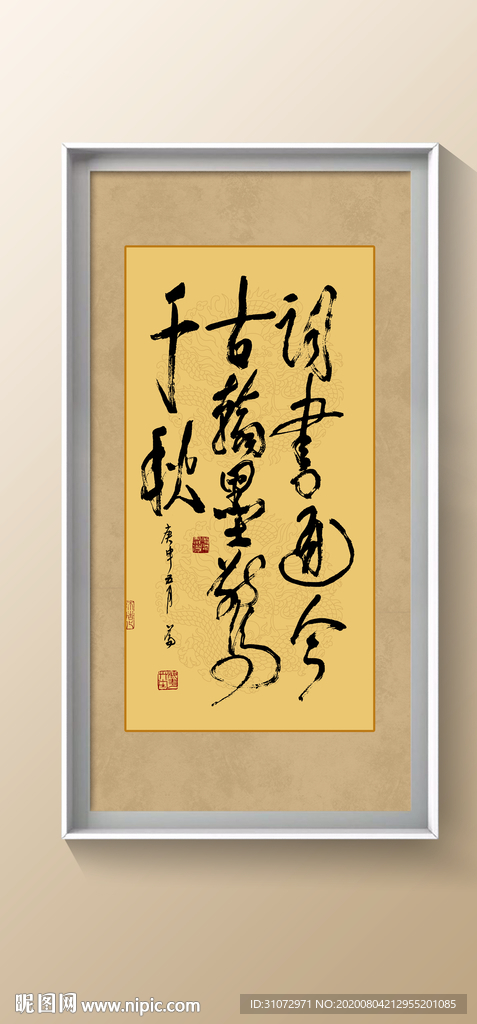 词书通今
古翰墨驚
千秋
庚申五月
昵图网 www.nipic.com
ID:31072971 NO:20200804212955201085